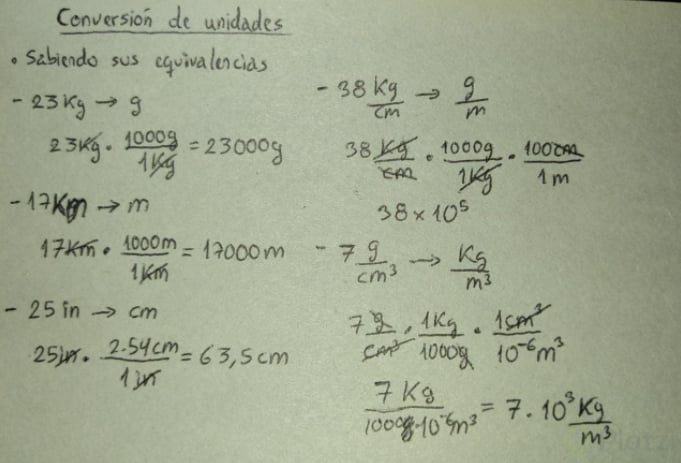 Conversión de unidades
• Sabiendo sus equivalencias
- 23 Kg → g
23 Kg · 1000g / 1 Kg = 23000g
- 17 Km → m
17 Km · 1000m / 1 Km = 17000m
- 25 in → cm
25 in · 2.54 cm / 1 in = 63,5 cm
- 38 Kg / cm → g / m
38 Kg / cm · 1000g / 1 Kg · 100 cm / 1 m
38 × 10⁵
- 7 g / cm³ → Kg / m³
7 g / cm³ · 1 Kg / 1000g · 1 cm³ / 10⁻⁶ m³
7 Kg / 1000 · 10⁻⁶ m³ = 7 · 10³ Kg / m³